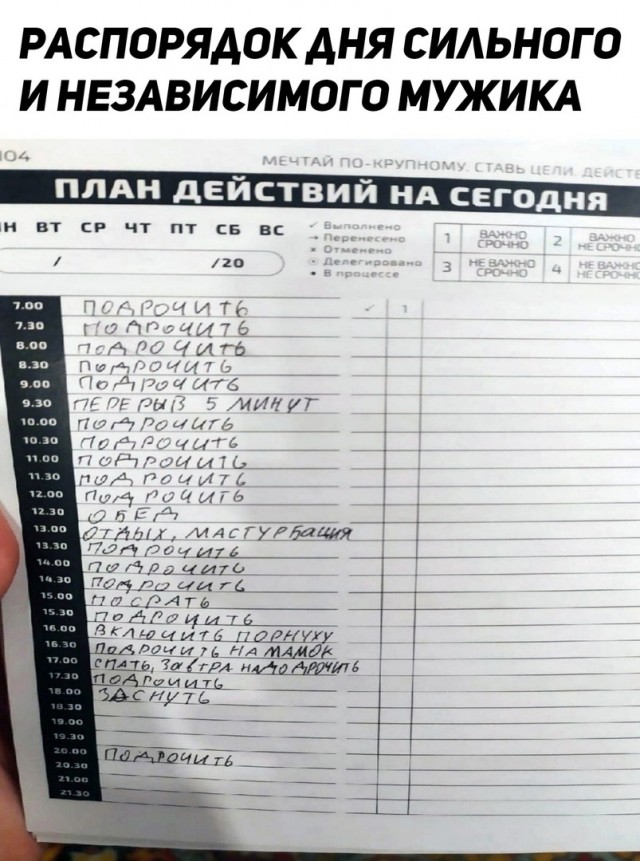 РАСПОРЯДОК ДНЯ СИЛЬНОГО
И НЕЗАВИСИМОГО МУЖИКА
104
МЕЧТАЙ ПО-КРУПНОМУ. СТАВЬ ЦЕЛИ. ДЕЙСТВ
ПЛАН ДЕЙСТВИЙ НА СЕГОДНЯ
ПН ВТ СР ЧТ ПТ СБ ВС
/ /20
✓ Выполнено
→ Перенесено
× Отменено
Делегировано
• В процессе
1 ВАЖНО СРОЧНО 2 ВАЖНО НЕ СРОЧНО
3 НЕ ВАЖНО СРОЧНО 4 НЕ ВАЖНО НЕ СРОЧНО
7.00 ПОДРОЧИТЬ ✓ 1
7.30 ПОДРОЧИТЬ
8.00 ПОДРОЧИТЬ
8.30 ПОДРОЧИТЬ
9.00 ПОДРОЧИТЬ
9.30 ПЕРЕРЫВ 5 МИНУТ
10.00 ПОДРОЧИТЬ
10.30 ПОДРОЧИТЬ
11.00 ПОДРОЧИТЬ
11.30 ПОДРОЧИТЬ
12.00 ПОДРОЧИТЬ
12.30 ОБЕД
13.00 ОТДЫХ, МАСТУРБАЦИЯ
13.30 ПОДРОЧИТЬ
14.00 ПОДРОЧИТЬ
14.30 ПОДРОЧИТЬ
15.00 ПОСРАТЬ
15.30 ПОДРОЧИТЬ
16.00 ВКЛЮЧИТЬ ПОРНУХУ
16.30 ПОДРОЧИТЬ НА МАМОК
17.00 СПАТЬ, ЗАВТРА НАДО ДРОЧИТЬ
17.30 ПОДРОЧИТЬ
18.00 ЗАСНУТЬ
18.30
19.00
19.30
20.00 ПОДРОЧИТЬ
20.30
21.00
21.30